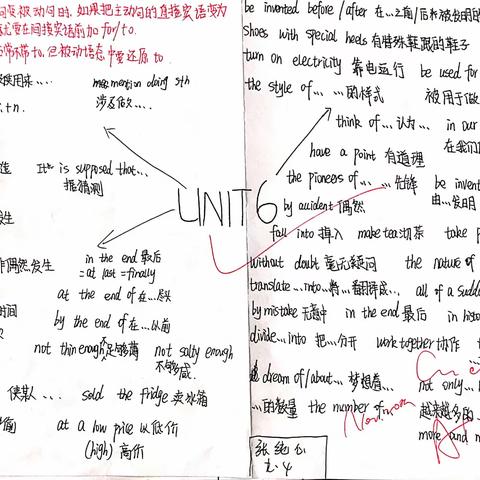 变被动句时,如果把主动句的直接宾语变为
要在间接宾语前加for/to.
不带to,但被动语态中要还原to
被使用来....
mention doing sth
涉及做....
It is supposed that...
据猜测
发生
偶然发生
in the end 最后
= at last = finally
at the end of 在...尽头
时间
by the end of 在...以前
not thin enough 不足够薄
not salty enough
不够咸
使某人...
sold the fridge 卖冰箱
at a low price 以低价
(high) 高价
UNIT 6
be invented before / after 在...之前/后被发明
shoes with special heels 有特殊鞋跟的鞋子
turn on electricity 靠电运行
be used for
the style of... ...的样式
被用于做
think of... 认为...
in our
在我们
have a point 有道理
the pioneers of... ...先锋
be invent
由...发明
by accident 偶然
fall into 掉入
make tea 切茶
take p
without doubt 毫无疑问
the nature of
translate...into... 将...翻译成...
all of a sudd
by mistake 无意中
in the end 最后
in hist
divide...into 把...分开
work together 协作
dream of/about... 梦想着...
not only...
...的数量
the number of
越来越多的
more and m